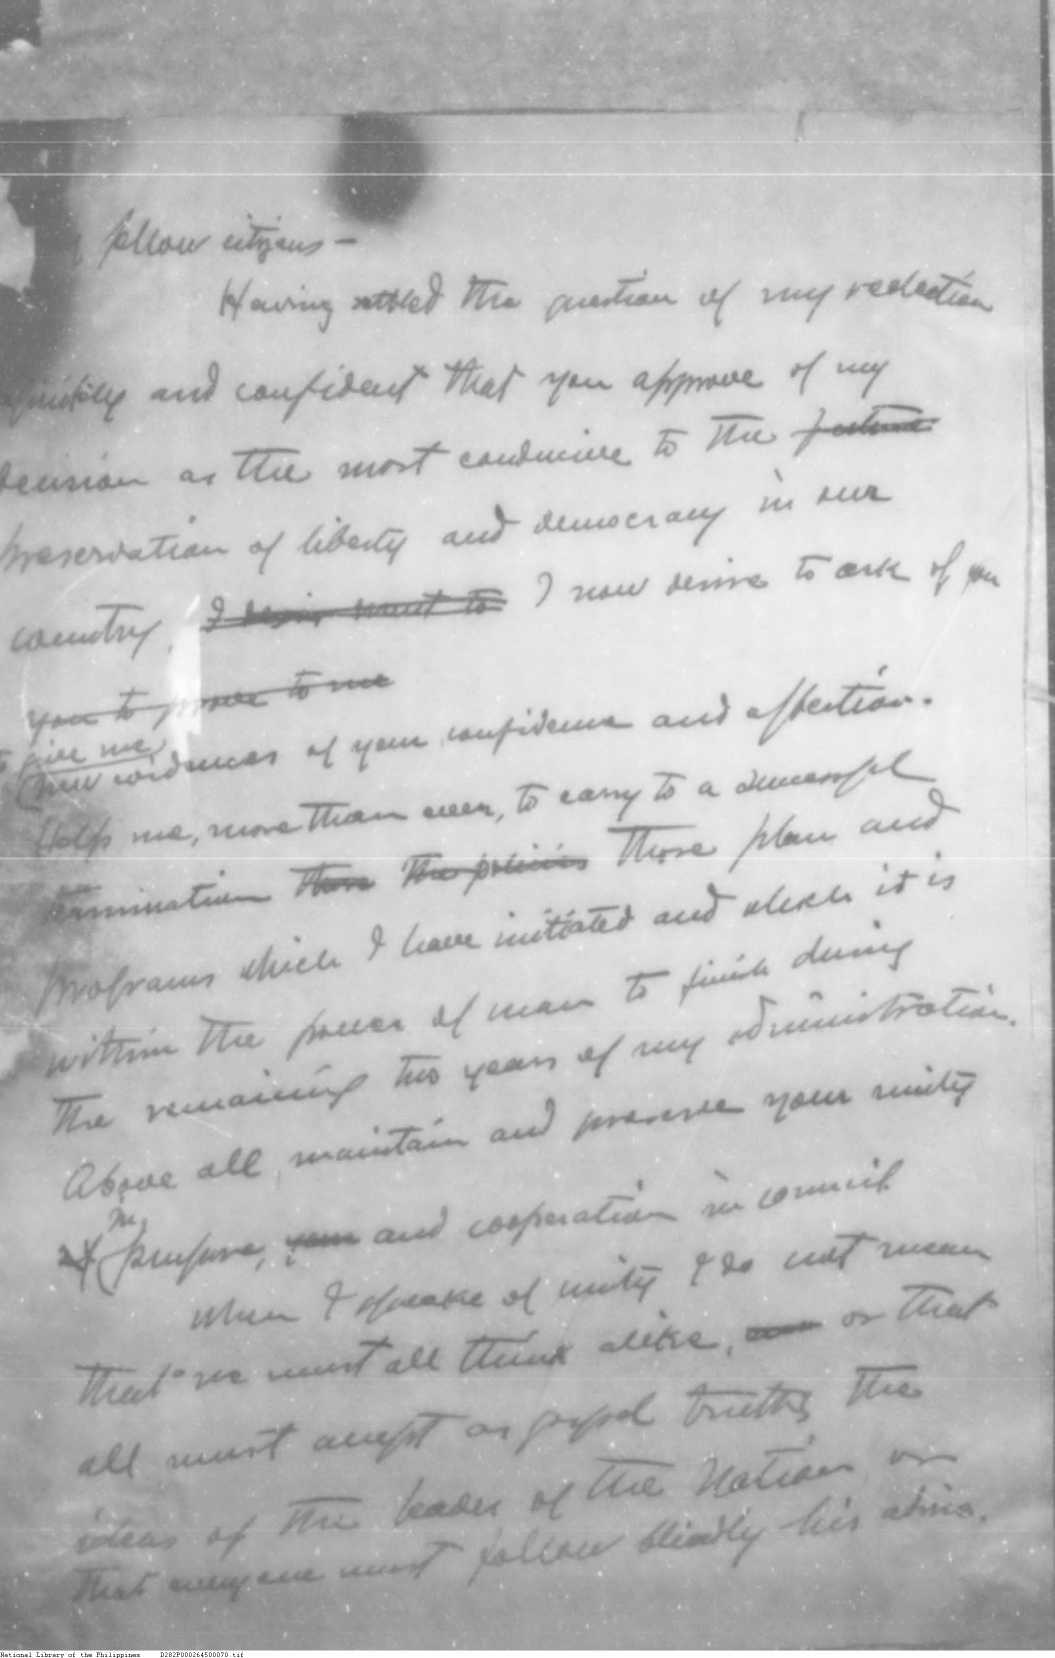 fellow citizens —
Having settled the question of my reelection
quickly and confident that you approve of my
decision as the most conducive to the future
preservation of liberty and democracy in our
country, I desire want to I now desire to ask of you
you to prove to me
to give me
new evidences of your confidence and affection.
Help me, more than ever, to carry to a successful
termination those the policies those plan and
programs which I have initiated and which it is
within the power of man to finish during
the remaining two years of my administration.
Above all, maintain and preserve your unity
in
of purpose, your and cooperation in council
When I speake of unity I do not mean
that we must all think alike, or that
all must accept as gospel truths the
ideas of the leader of the Nation or
that everyone must follow blindly his advice.
National Library of the Philippines D282P000264500070.tif